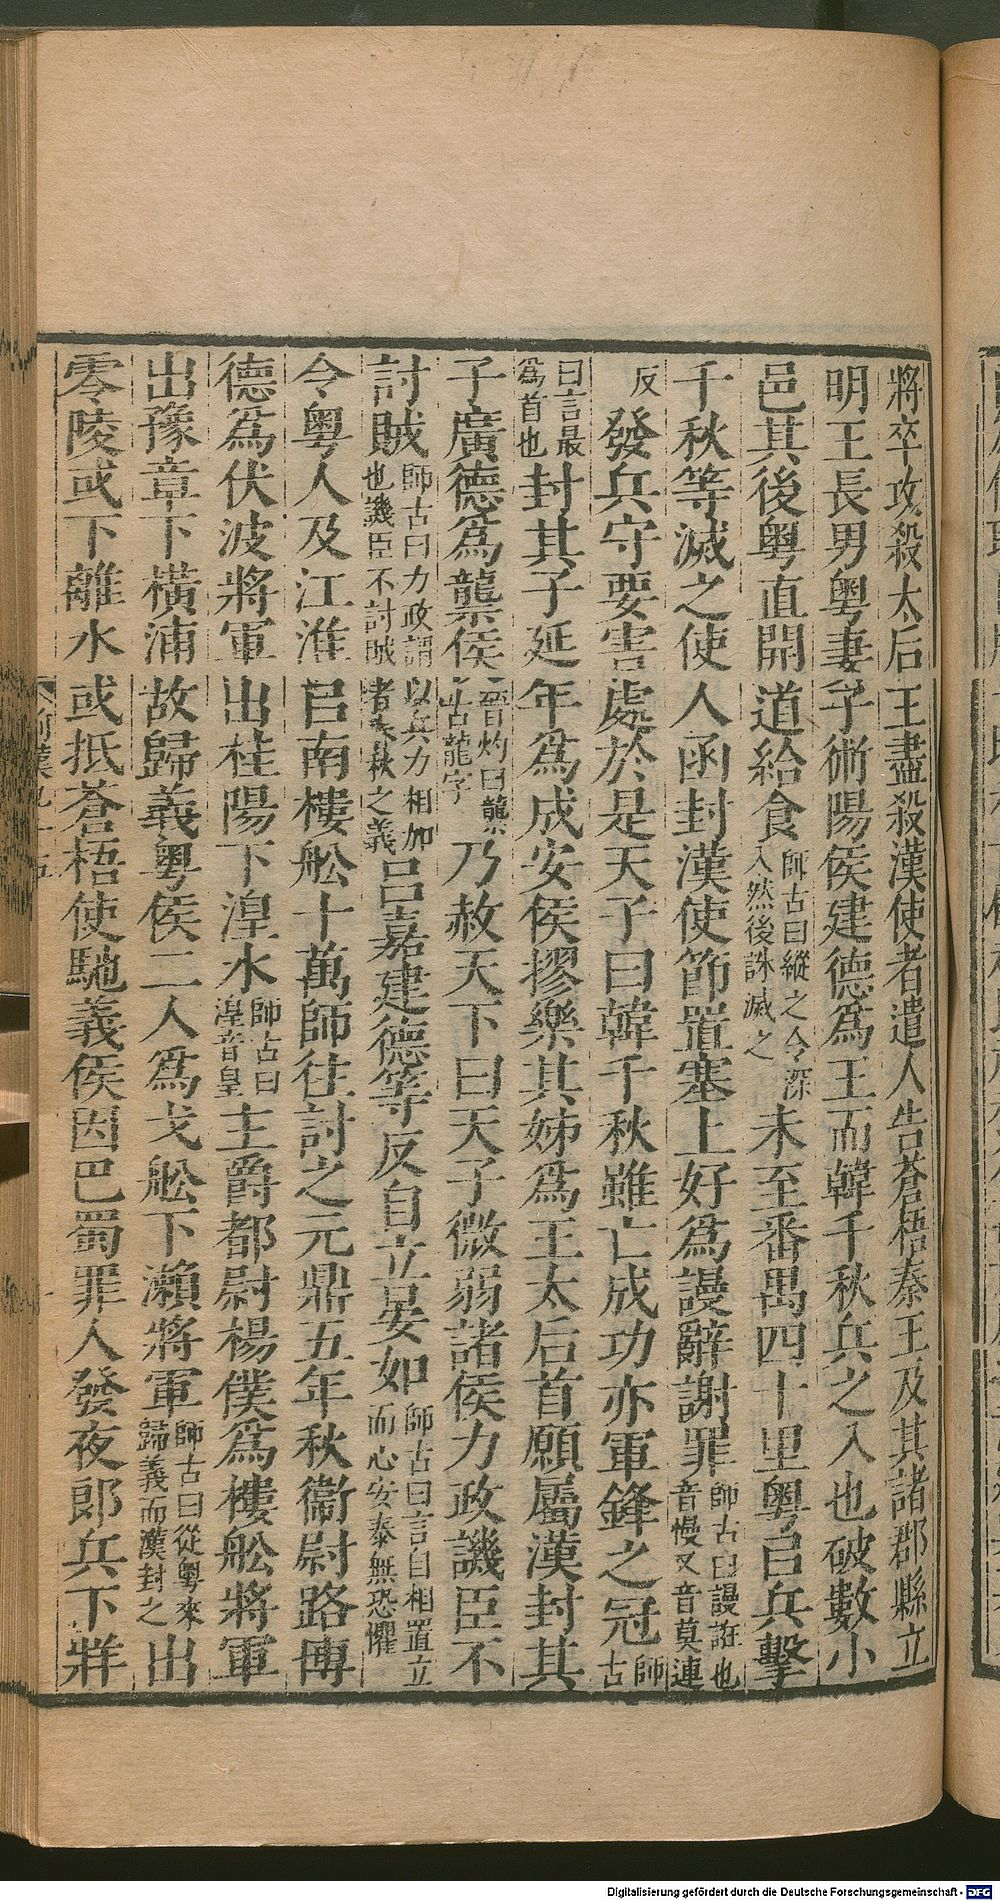 將卒攻殺太后王盡殺漢使者遣人告蒼梧秦王及其諸郡縣立
明王長男粵妻子術陽侯建德爲王而韓千秋兵之入也破數小
邑其後粵直開道給食師古曰縱之令深入然後誅滅之未至番禺四十里粵㠯兵擊
千秋等滅之使人函封漢使節置塞上好爲謾辭謝罪師古曰謾誑也音慢又音莫連
反發兵守要害處於是天子曰韓千秋雖亡成功亦軍鋒之冠師古
曰言最爲首也封其子延年爲成安侯摎樂其姊爲王太后首願屬漢封其
子廣德爲龒侯晉灼曰龒古龍字乃赦天下曰天子微弱諸侯力政譏臣不
討賊師古曰力政謂以兵力相加也譏臣不討賊者春秋之義呂嘉建德等反自立晏如師古曰言自相置立而心安泰無恐懼
令粵人及江淮㠯南樓舩十萬師往討之元鼎五年秋衞尉路博
德爲伏波將軍出桂陽下湟水師古曰湟音皇主爵都尉楊僕爲樓舩將軍
出豫章下橫浦故歸義粵侯二人爲戈舩下瀨將軍師古曰從粵來歸義而漢封之出
零陵或下離水或抵蒼梧使馳義侯因巴蜀罪人發夜郎兵下牂
前漢九十五
Digitalisierung gefördert durch die Deutsche Forschungsgemeinschaft - DFG